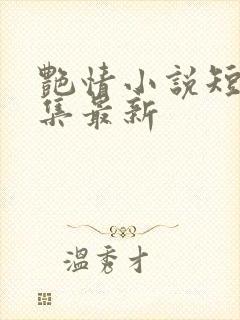 艷情小說短
集最新
溫秀才